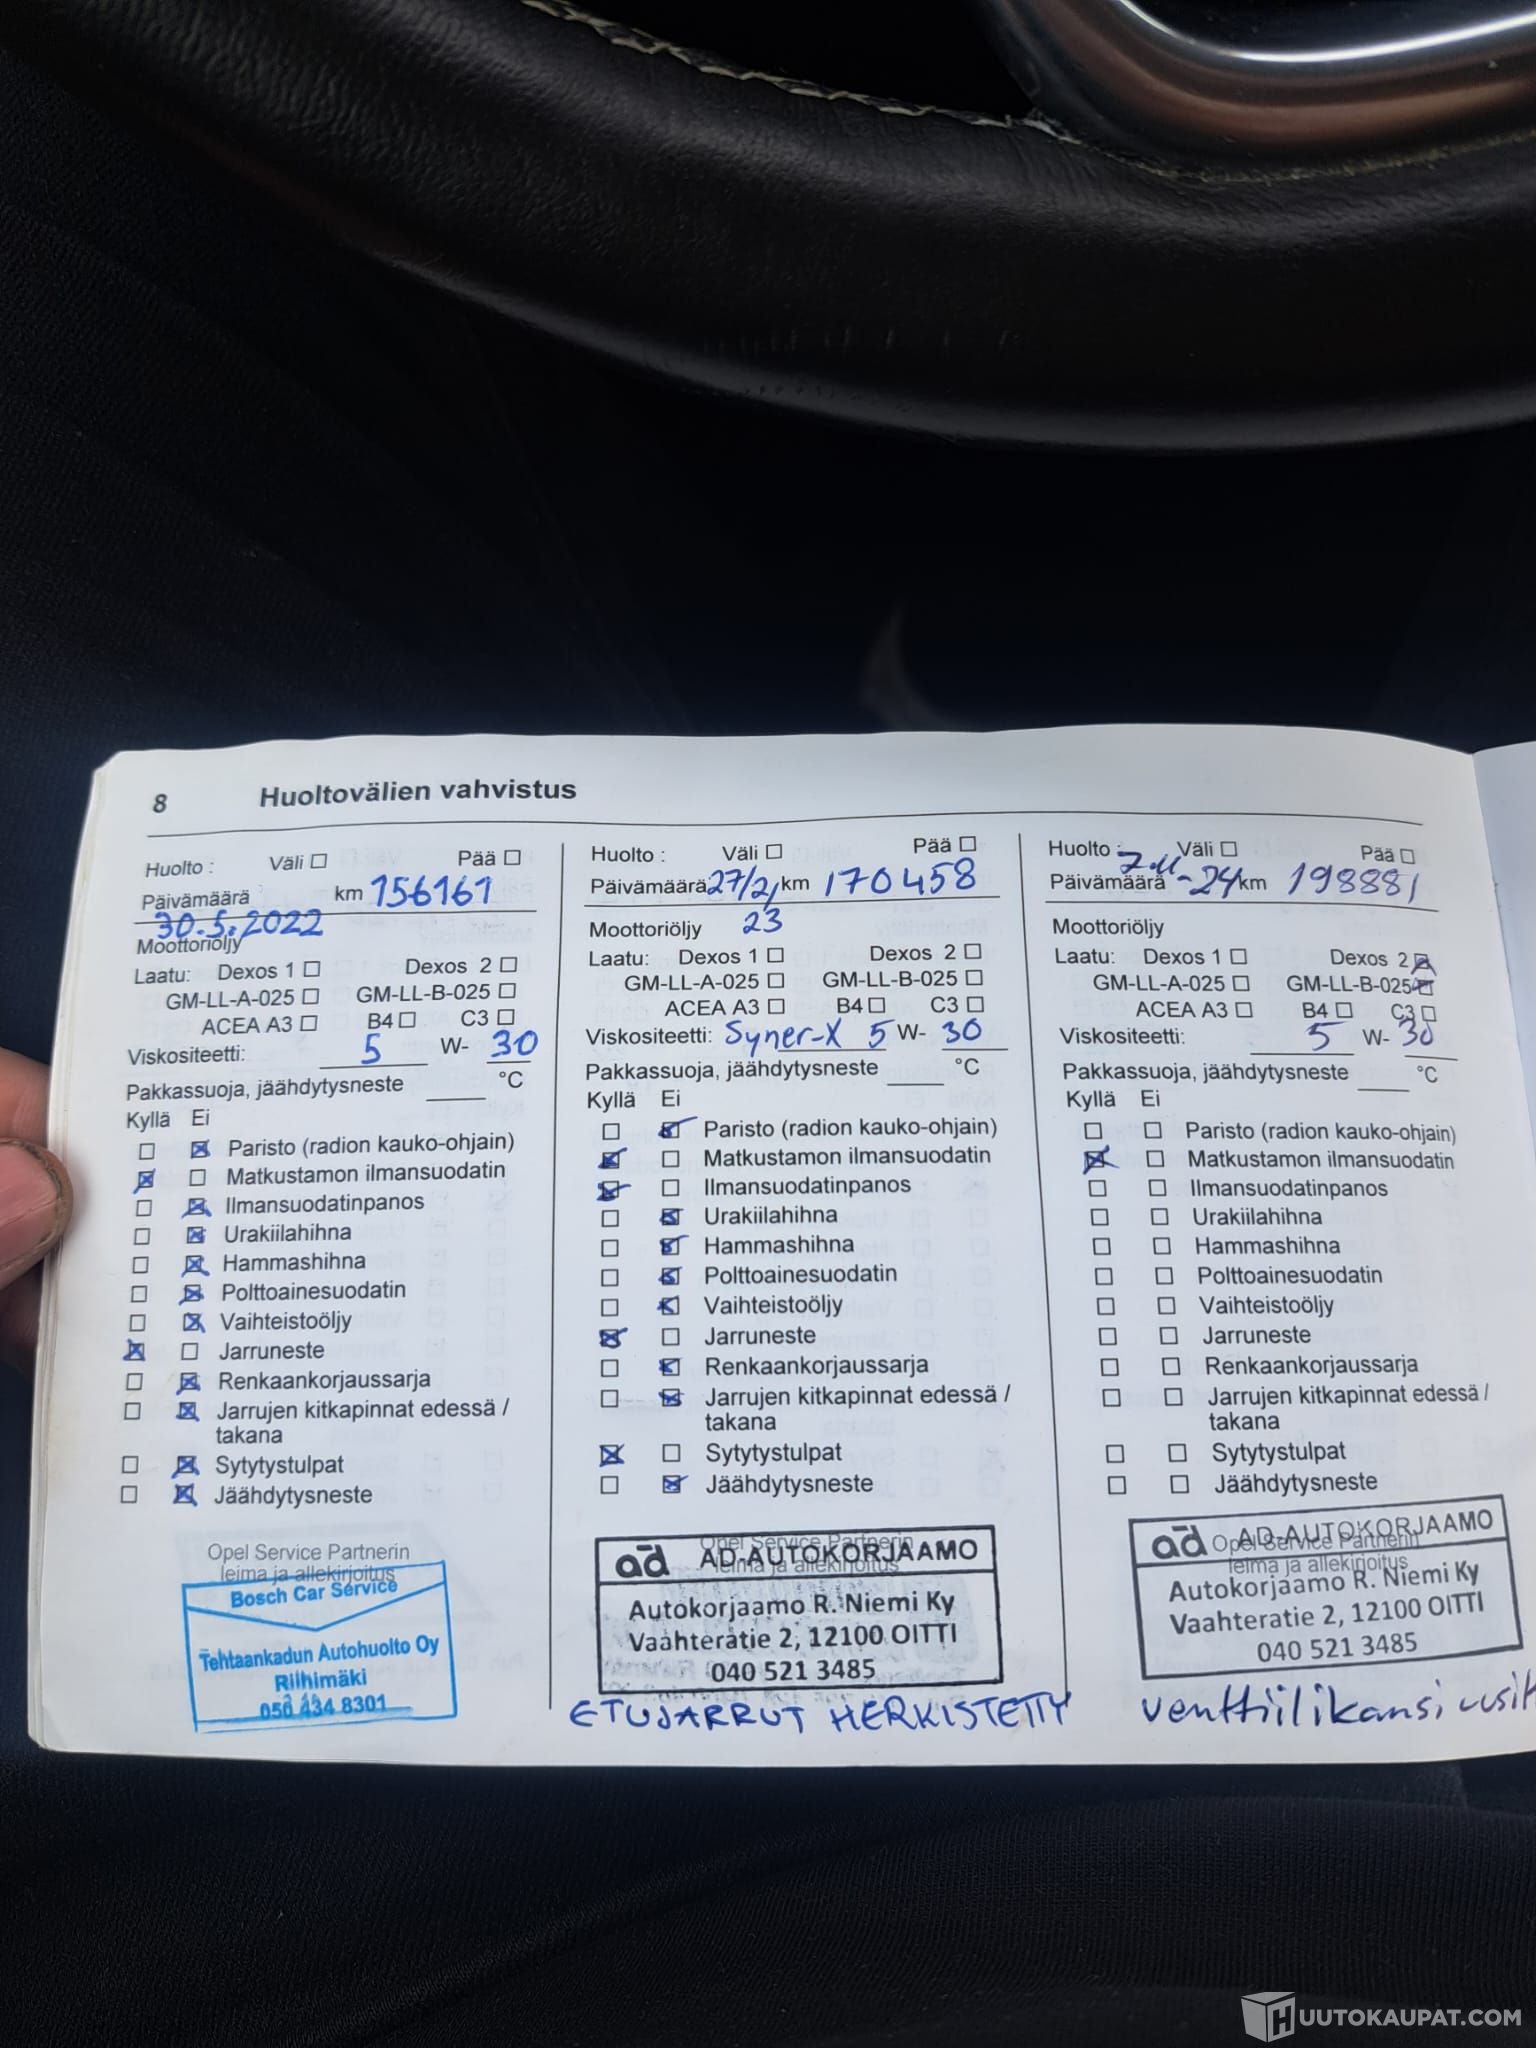 8 Huoltovälien vahvistus
Huolto : Väli ☐ Pää ☐
Päivämäärä km 156161
30.5.2022
Moottoriöljy
Laatu: Dexos 1 ☐ Dexos 2 ☐
GM-LL-A-025 ☐ GM-LL-B-025 ☐
ACEA A3 ☐ B4 ☐ C3 ☐
Viskositeetti: 5 W- 30
Pakkassuoja, jäähdytysneste ____ °C
Kyllä Ei
☐ ☒ Paristo (radion kauko-ohjain)
☒ ☐ Matkustamon ilmansuodatin
☐ ☒ Ilmansuodatinpanos
☐ ☒ Urakiilahihna
☐ ☒ Hammashihna
☐ ☒ Polttoainesuodatin
☐ ☒ Vaihteistoöljy
☒ ☐ Jarruneste
☐ ☒ Renkaankorjaussarja
☐ ☒ Jarrujen kitkapinnat edessä /
takana
☐ ☒ Sytytystulpat
☐ ☒ Jäähdytysneste
Opel Service Partnerin
leima ja allekirjoitus
Bosch Car Service
Tehtaankadun Autohuolto Oy
Riihimäki
050 434 8301
Huolto : Väli ☐ Pää ☐
Päivämäärä 27/2, km 170458
23
Moottoriöljy
Laatu: Dexos 1 ☐ Dexos 2 ☐
GM-LL-A-025 ☐ GM-LL-B-025 ☐
ACEA A3 ☐ B4 ☐ C3 ☐
Viskositeetti: Syner-X 5 W- 30
Pakkassuoja, jäähdytysneste ____ °C
Kyllä Ei
☐ ☒ Paristo (radion kauko-ohjain)
☒ ☐ Matkustamon ilmansuodatin
☒ ☐ Ilmansuodatinpanos
☐ ☒ Urakiilahihna
☐ ☒ Hammashihna
☐ ☒ Polttoainesuodatin
☐ ☒ Vaihteistoöljy
☒ ☐ Jarruneste
☐ ☒ Renkaankorjaussarja
☐ ☒ Jarrujen kitkapinnat edessä /
takana
☒ ☐ Sytytystulpat
☐ ☒ Jäähdytysneste
Opel Service Partnerin
leima ja allekirjoitus
ad AD-AUTOKORJAAMO
Autokorjaamo R. Niemi Ky
Vaahteratie 2, 12100 OITTI
040 521 3485
ETUJARRUT HERKISTETTY
Huolto : Väli ☐ Pää ☐
Päivämäärä 7.11-24 km 198881
Moottoriöljy
Laatu: Dexos 1 ☐ Dexos 2 ☒
GM-LL-A-025 ☐ GM-LL-B-025 ☒
ACEA A3 ☐ B4 ☐ C3 ☐
Viskositeetti: 5 W- 30
Pakkassuoja, jäähdytysneste ____ °C
Kyllä Ei
☐ ☐ Paristo (radion kauko-ohjain)
☒ ☐ Matkustamon ilmansuodatin
☐ ☐ Ilmansuodatinpanos
☐ ☐ Urakiilahihna
☐ ☐ Hammashihna
☐ ☐ Polttoainesuodatin
☐ ☐ Vaihteistoöljy
☐ ☐ Jarruneste
☐ ☐ Renkaankorjaussarja
☐ ☐ Jarrujen kitkapinnat edessä /
takana
☐ ☐ Sytytystulpat
☐ ☐ Jäähdytysneste
Opel Service Partnerin
leima ja allekirjoitus
ad AD-AUTOKORJAAMO
Autokorjaamo R. Niemi Ky
Vaahteratie 2, 12100 OITTI
040 521 3485
venttiilikansi uusit
HUUTOKAUPAT.COM